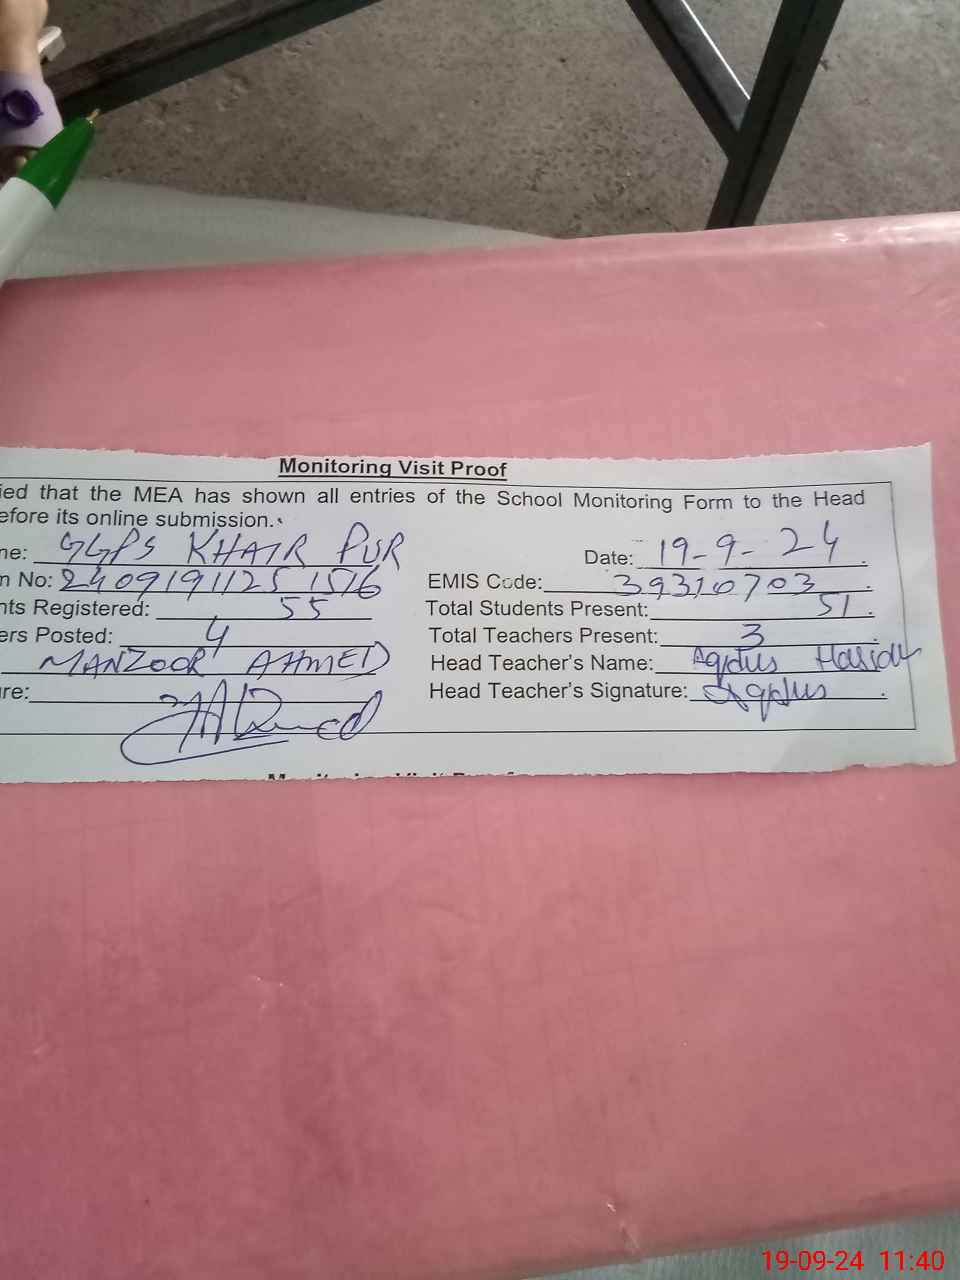 Monitoring Visit Proof
ied that the MEA has shown all entries of the School Monitoring Form to the Head
efore its online submission.
ne: GGPS KHAIR PUR Date: 19-9-24
n No: 24091911251516 EMIS Code: 39310703
nts Registered: 55 Total Students Present: 51
ers Posted: 4 Total Teachers Present: 3
MANZOOR AHMED Head Teacher's Name:
ure: Head Teacher's Signature:
19-09-24 11:40